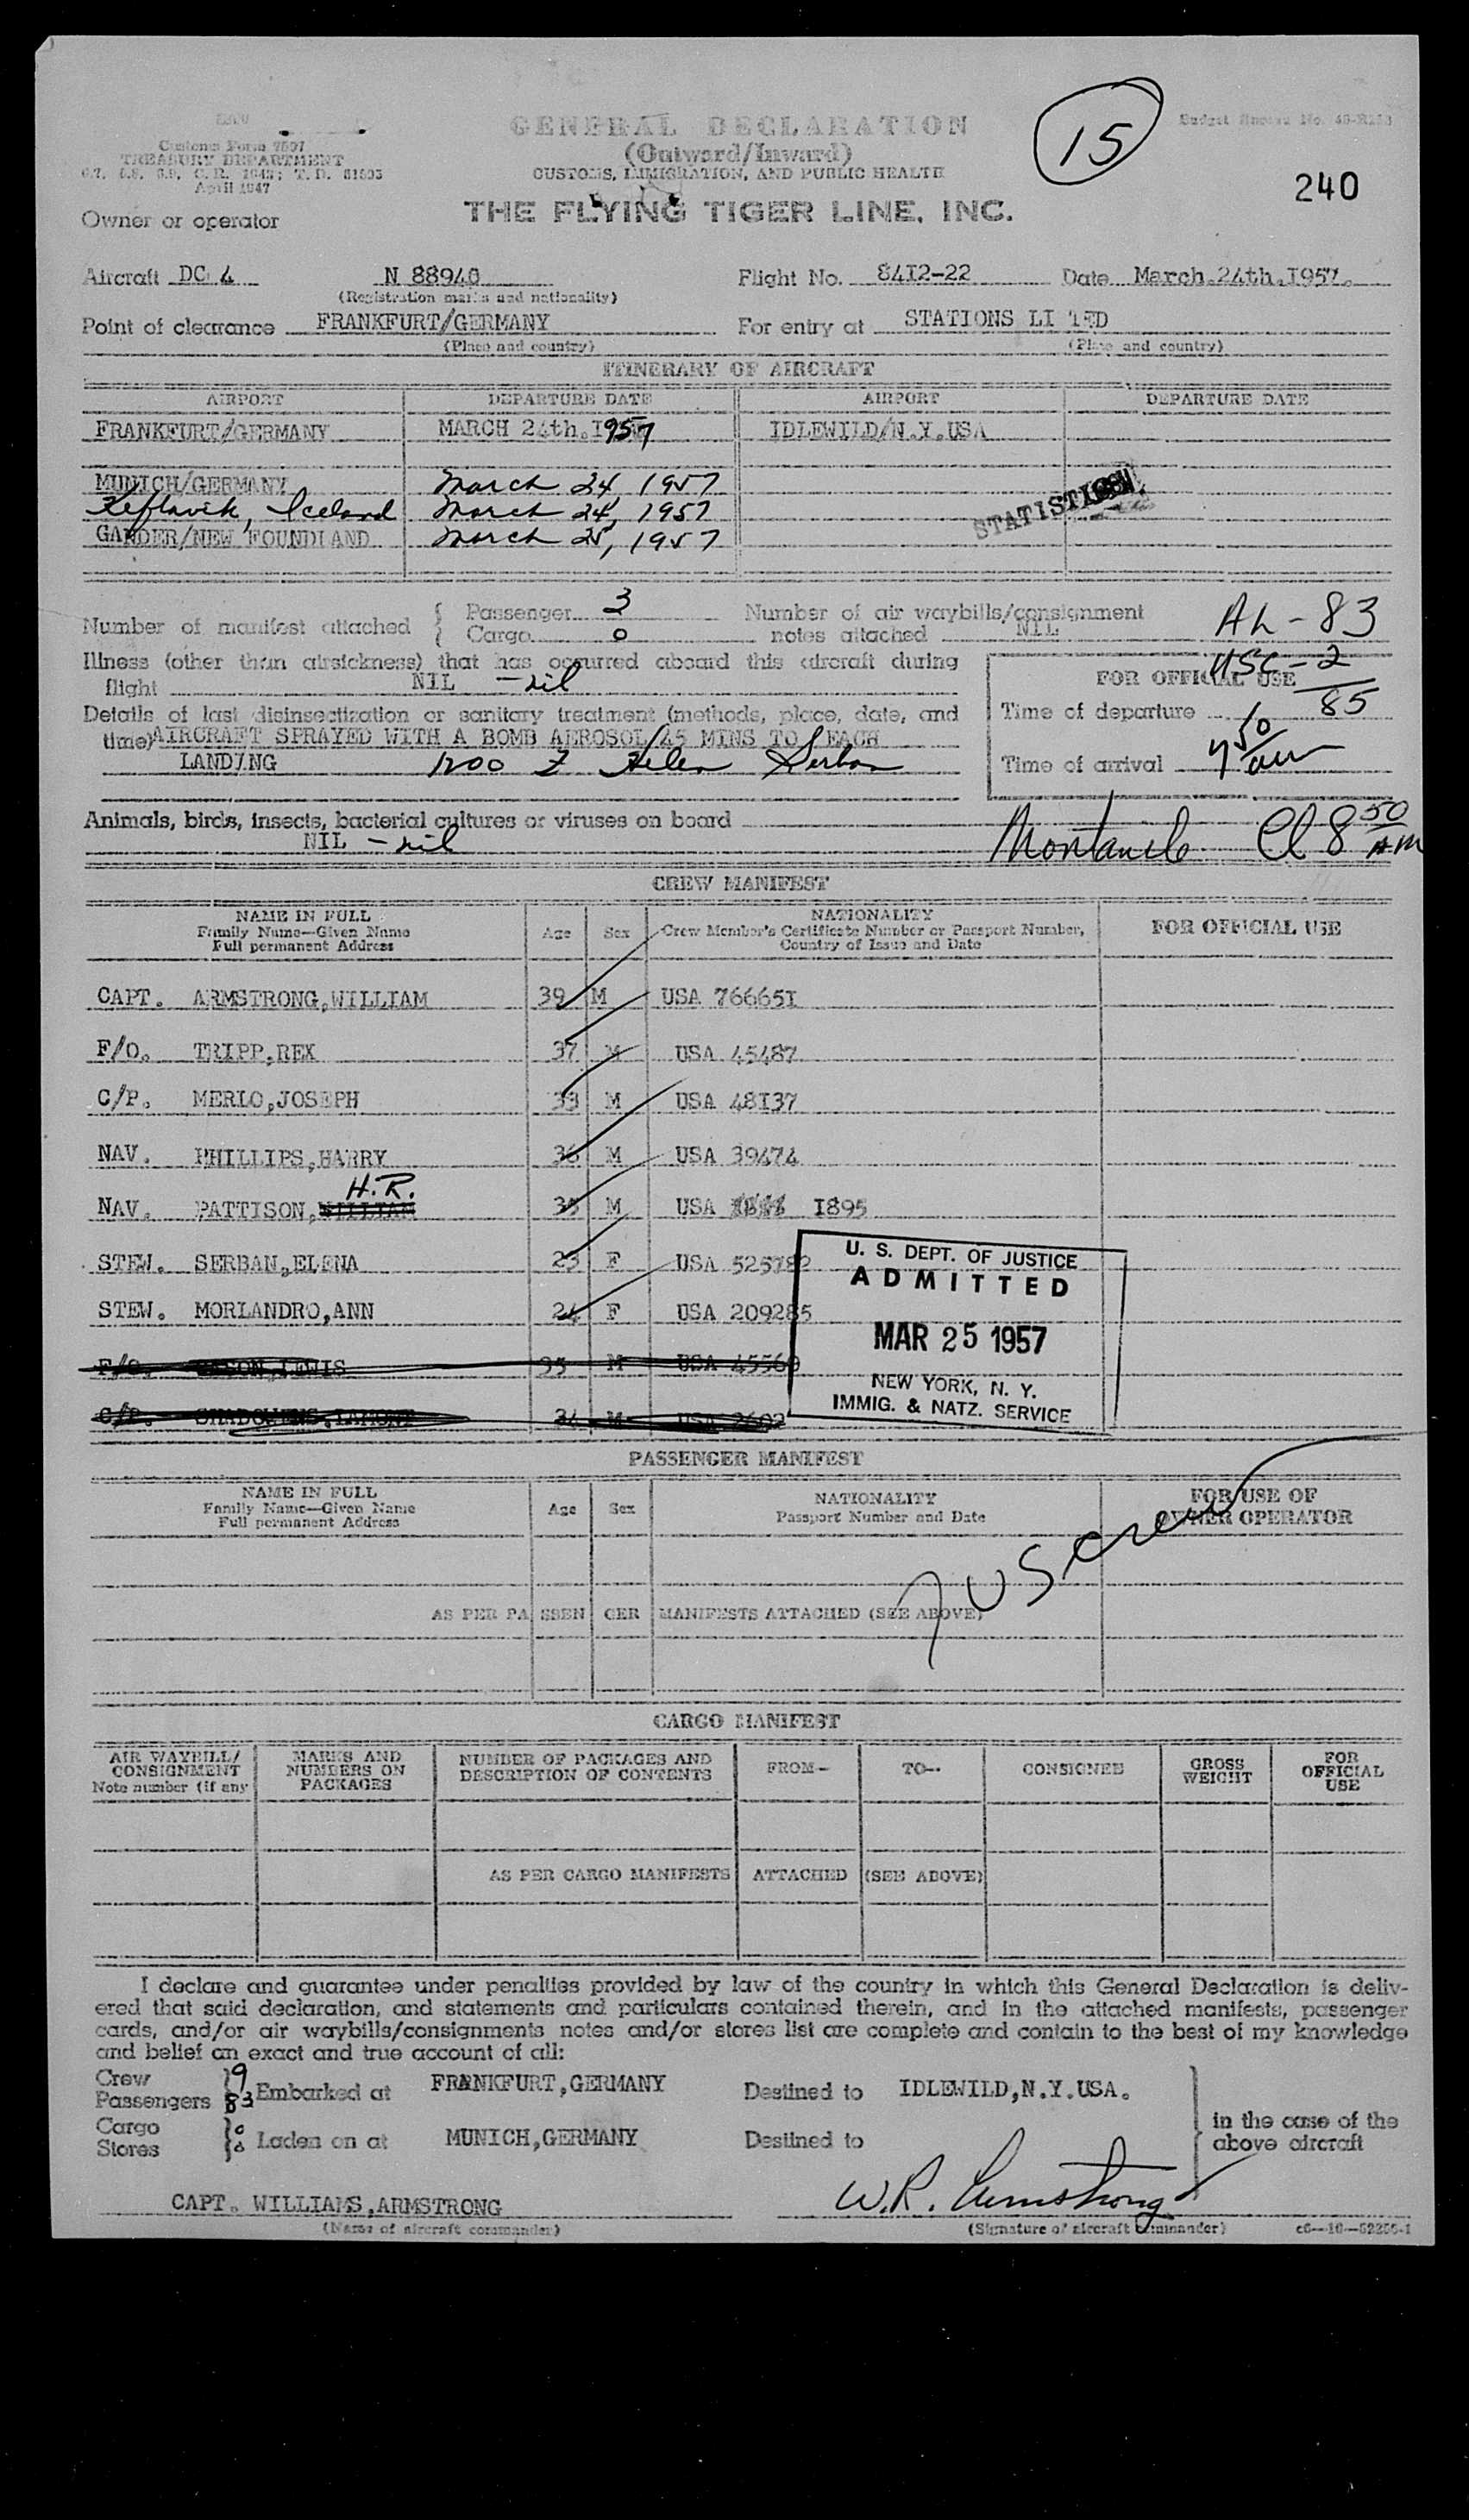 GENERAL DECLARATION
(Outward/Inward)
CUSTOMS, IMMIGRATION, AND PUBLIC HEALTH
Customs Form 7507
TREASURY DEPARTMENT
April 1947
15
240
Owner or operator THE FLYING TIGER LINE, INC.
Aircraft DC 4 N 88940 Flight No. 8412-22 Date March.24th.1957.
(Registration marks and nationality)
Point of clearance FRANKFURT/GERMANY For entry at STATIONS LI TED
(Place and country) (Place and country)
ITINERARY OF AIRCRAFT
AIRPORT DEPARTURE DATE AIRPORT DEPARTURE DATE
FRANKFURT/GERMANY MARCH 24th.1957 IDLEWILD/N.Y.USA
MUNICH/GERMANY March 24, 1957
Keflavik, Iceland March 24, 1957
GANDER/NEW FOUNDLAND March 25, 1957
STATISTICS
Number of manifest attached { Passenger 3 Number of air waybills/consignment
Cargo 0 notes attached NIL
AL-83
USC-2
85
Illness (other than airsickness) that has occurred aboard this aircraft during
flight NIL -nil
Details of last disinsectization or sanitary treatment (methods, place, date, and
time) AIRCRAFT SPRAYED WITH A BOMB AEROSOL/45 MINS TO EACH
LANDING 1200 Z Helen Serban
FOR OFFICIAL USE
Time of departure
Time of arrival 7 50 am
Animals, birds, insects, bacterial cultures or viruses on board
NIL -nil
Cl 8 50 AM
CREW MANIFEST
NAME IN FULL
Family Name—Given Name
Full permanent Address
Age Sex
NATIONALITY
Crew Member's Certificate Number or Passport Number,
Country of Issue and Date
FOR OFFICIAL USE
CAPT. ARMSTRONG,WILLIAM 39 M USA 766651
F/O. TRIPP,REX 37 M USA 45487
C/P. MERLO,JOSEPH 33 M USA 48137
NAV. PHILLIPS,HARRY 36 M USA 39474
H.R.
NAV. PATTISON,WILLIAM 35 M USA 1895
STEW. SERBAN,ELENA 23 F USA 525782
STEW. MORLANDRO,ANN 24 F USA 209285
F/O. LEWIS 35 M USA 45560
C/P. 34 M USA 2602
U. S. DEPT. OF JUSTICE
ADMITTED
MAR 25 1957
NEW YORK, N. Y.
IMMIG. & NATZ. SERVICE
PASSENGER MANIFEST
NAME IN FULL
Family Name—Given Name
Full permanent Address
Age Sex
NATIONALITY
Passport Number and Date
FOR USE OF
OWNER OPERATOR
7 US crew
AS PER PA SSEN GER MANIFESTS ATTACHED (SEE ABOVE)
CARGO MANIFEST
AIR WAYBILL/
CONSIGNMENT
Note number (if any
MARKS AND
NUMBERS ON
PACKAGES
NUMBER OF PACKAGES AND
DESCRIPTION OF CONTENTS
FROM— TO— CONSIGNEE
GROSS
WEIGHT
FOR
OFFICIAL
USE
AS PER CARGO MANIFESTS ATTACHED (SEE ABOVE)
I declare and guarantee under penalties provided by law of the country in which this General Declaration is deliv-
ered that said declaration, and statements and particulars contained therein, and in the attached manifests, passenger
cards, and/or air waybills/consignments notes and/or stores list are complete and contain to the best of my knowledge
and belief an exact and true account of all:
Crew 9
Passengers 83 Embarked at FRANKFURT,GERMANY Destined to IDLEWILD,N.Y.USA.
Cargo 0
Stores 0 Laden on at MUNICH,GERMANY Destined to
in the case of the
above aircraft
CAPT. WILLIAMS,ARMSTRONG W.R. Armstrong
(Name of aircraft commander) (Signature of aircraft commander)